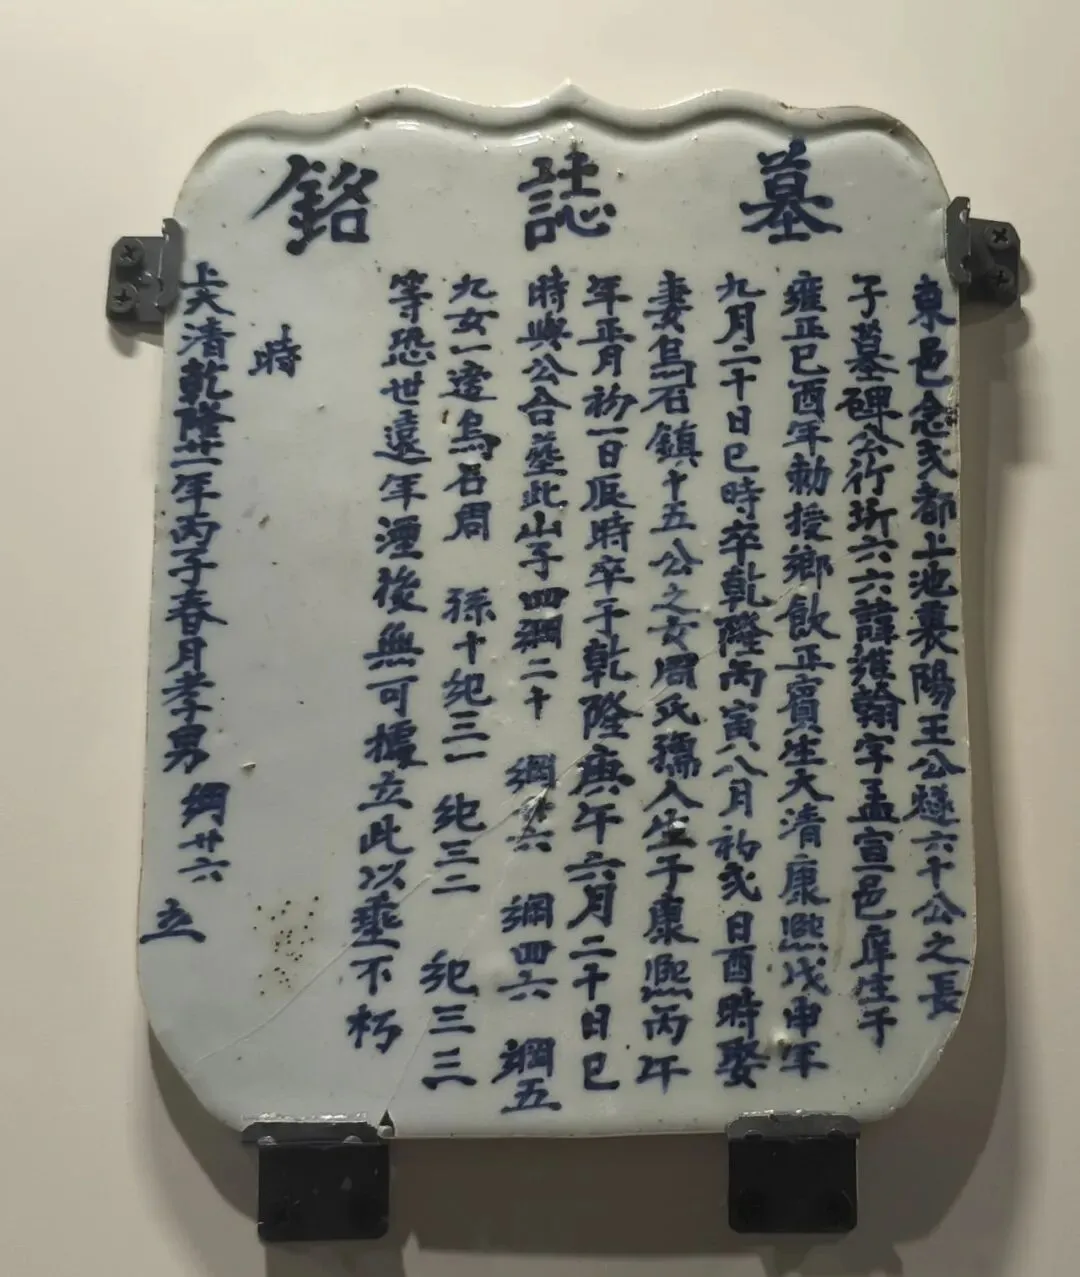 墓誌銘
東邑念弍都上池裏陽王公燧六十公之長
子墓碑公行圻六六諱維翰字孟宣邑庠生于
雍正已酉年勅授鄉飲正賓生大清康熙戊申年
九月二十日巳時卒乾隆丙寅八月初弍日酉時娶
妻烏石鎮十五公之女周氏孺人生于康熙丙午
年正月初一日辰時卒于乾隆庚午六月二十日巳
時與公合塟此山子四綱二十 綱廿六 綱四六 綱五
九女一適烏石周 孫十紀三一 紀三二 紀三三
等恐世遠年湮後無可據立此以垂不朽
時
大清乾隆廿一年丙子春月孝男 綱廿六 立